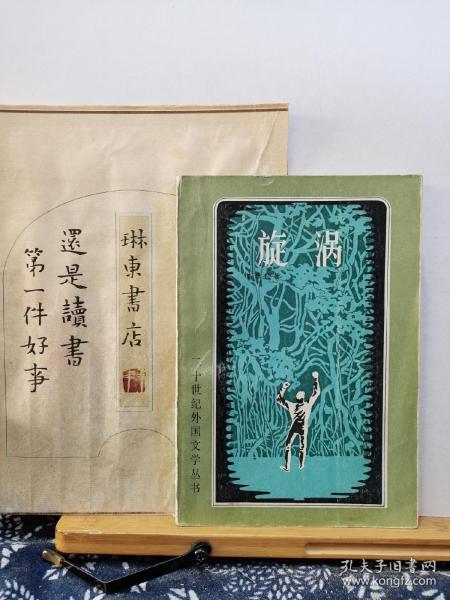 還是讀書
第一件好事
琳東書店
旋涡
二十世纪外国文学丛书
孔夫子旧书网
kongfz.com